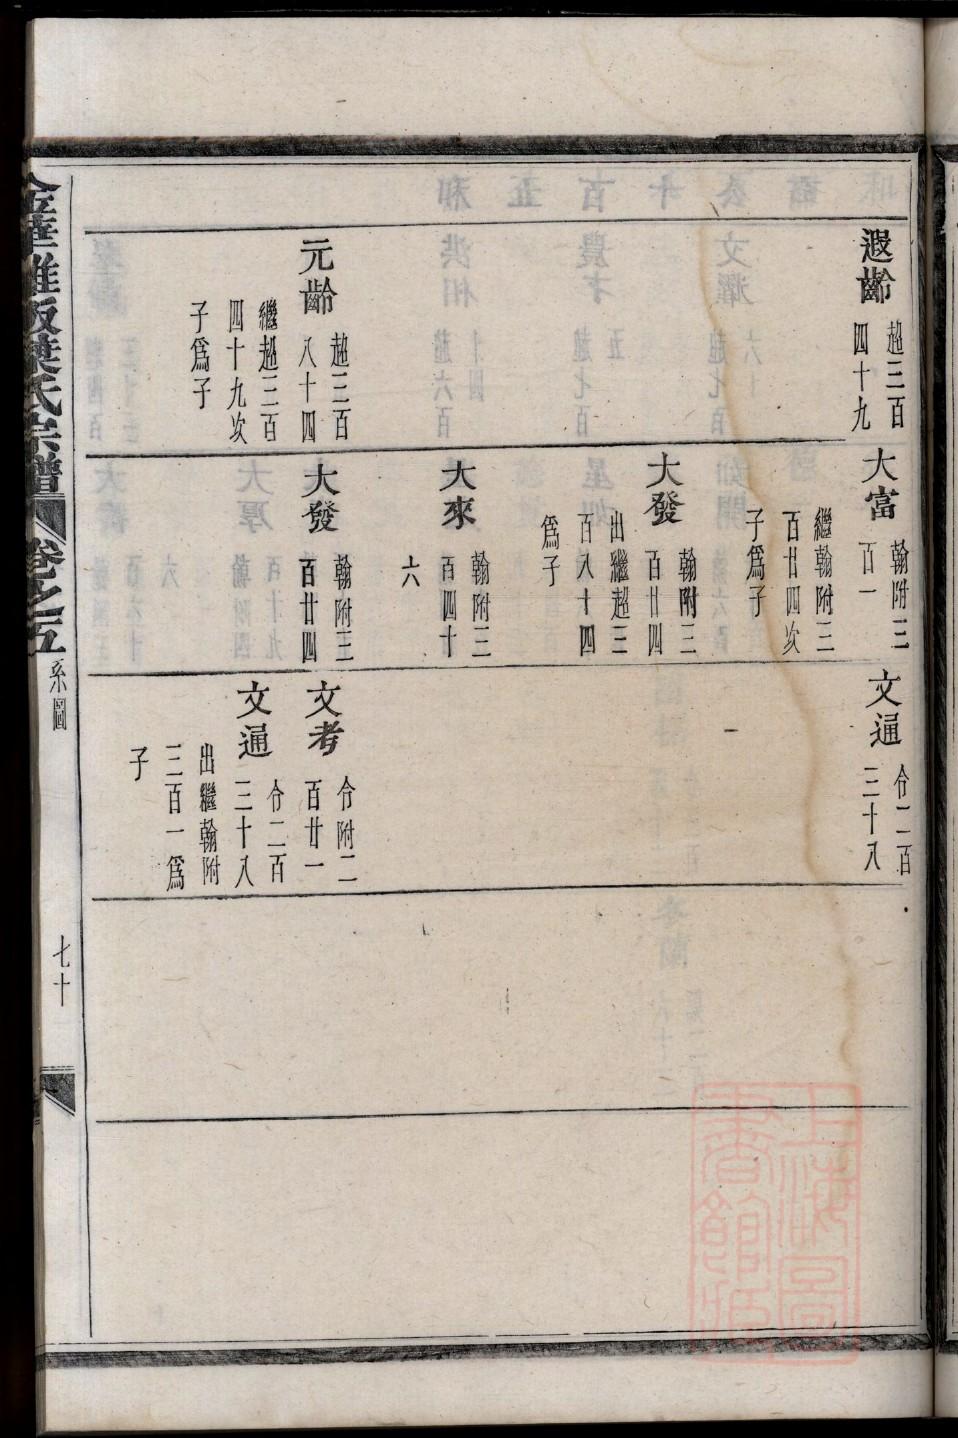 遐齡
超三百
四十九
元齡
超三百
八十四
繼超三百
四十九次
子爲子
大富
翰附三
百一
繼翰附三
百廿四次
子爲子
大發
翰附三
百廿四
出繼超三
百八十四
爲子
大來
翰附三
百四十
六
大發
翰附三
百廿四
文通
仝二百
三十八
文考
仝附二
百廿一
文通
仝二百
三十八
出繼翰附
三百一爲
子
葉氏宗譜
卷之五
系圖
七十
上海圖書館藏